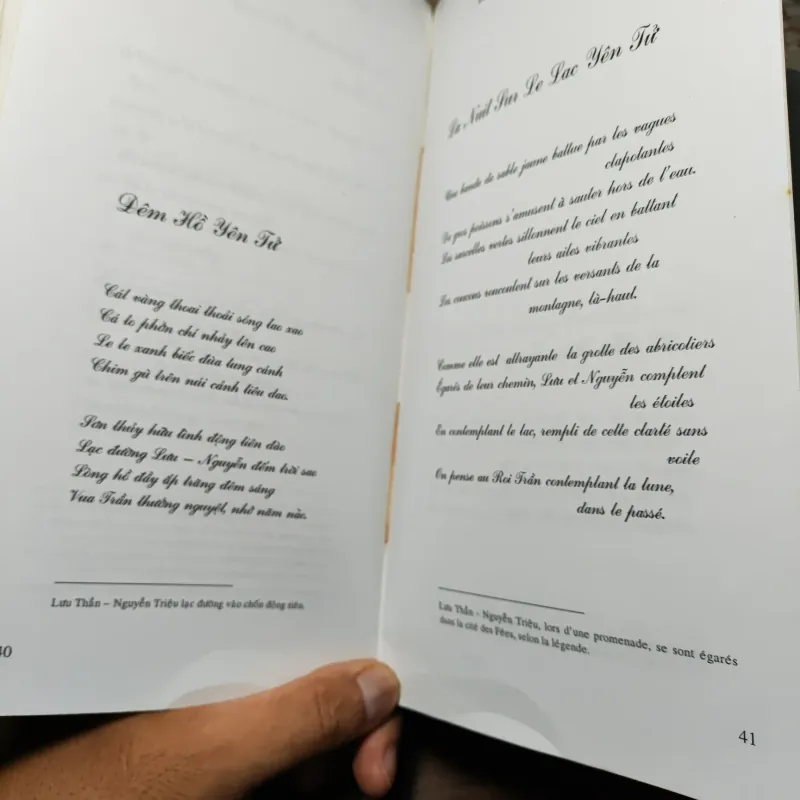 Đêm Hồ Yên Tử
Cát vàng thoai thoải sóng lao xao
Cá lo phởn chí nhảy lên cao
Le le xanh biếc đùa lung cánh
Chim gù trên núi cảnh tiêu dao.
Sơn thủy hữu tình động tiên đào
Lạc đường Lưu – Nguyễn đếm trời sao
Lòng hồ đầy ắp trăng đêm sáng
Vua Trần thưởng nguyệt, nhớ năm nào.
Lưu Thần – Nguyễn Triệu lạc đường vào chốn động tiên.
40
La Nuit Sur Le Lac Yên Tử
Une bande de sable jaune battue par les vagues
clapotantes
De gos poissons s'amusent à sauter hors de l'eau.
Les sarcelles vertes sillonnent le ciel en battant
leurs ailes vibrantes
Les coucous roucoulent sur les versants de la
montagne, là-haut.
Comme elle est attrayante la grotte des abricotiers
Égarés de leur chemin, Lưu et Nguyễn comptent
les étoiles
En contemplant le lac, rempli de cette clarté sans
voile
On pense au Roi Trần contemplant la lune,
dans le passé.
Lưu Thần - Nguyễn Triệu, lors d'une promenade, se sont égarés
dans la cité des Fées, selon la légende.
41